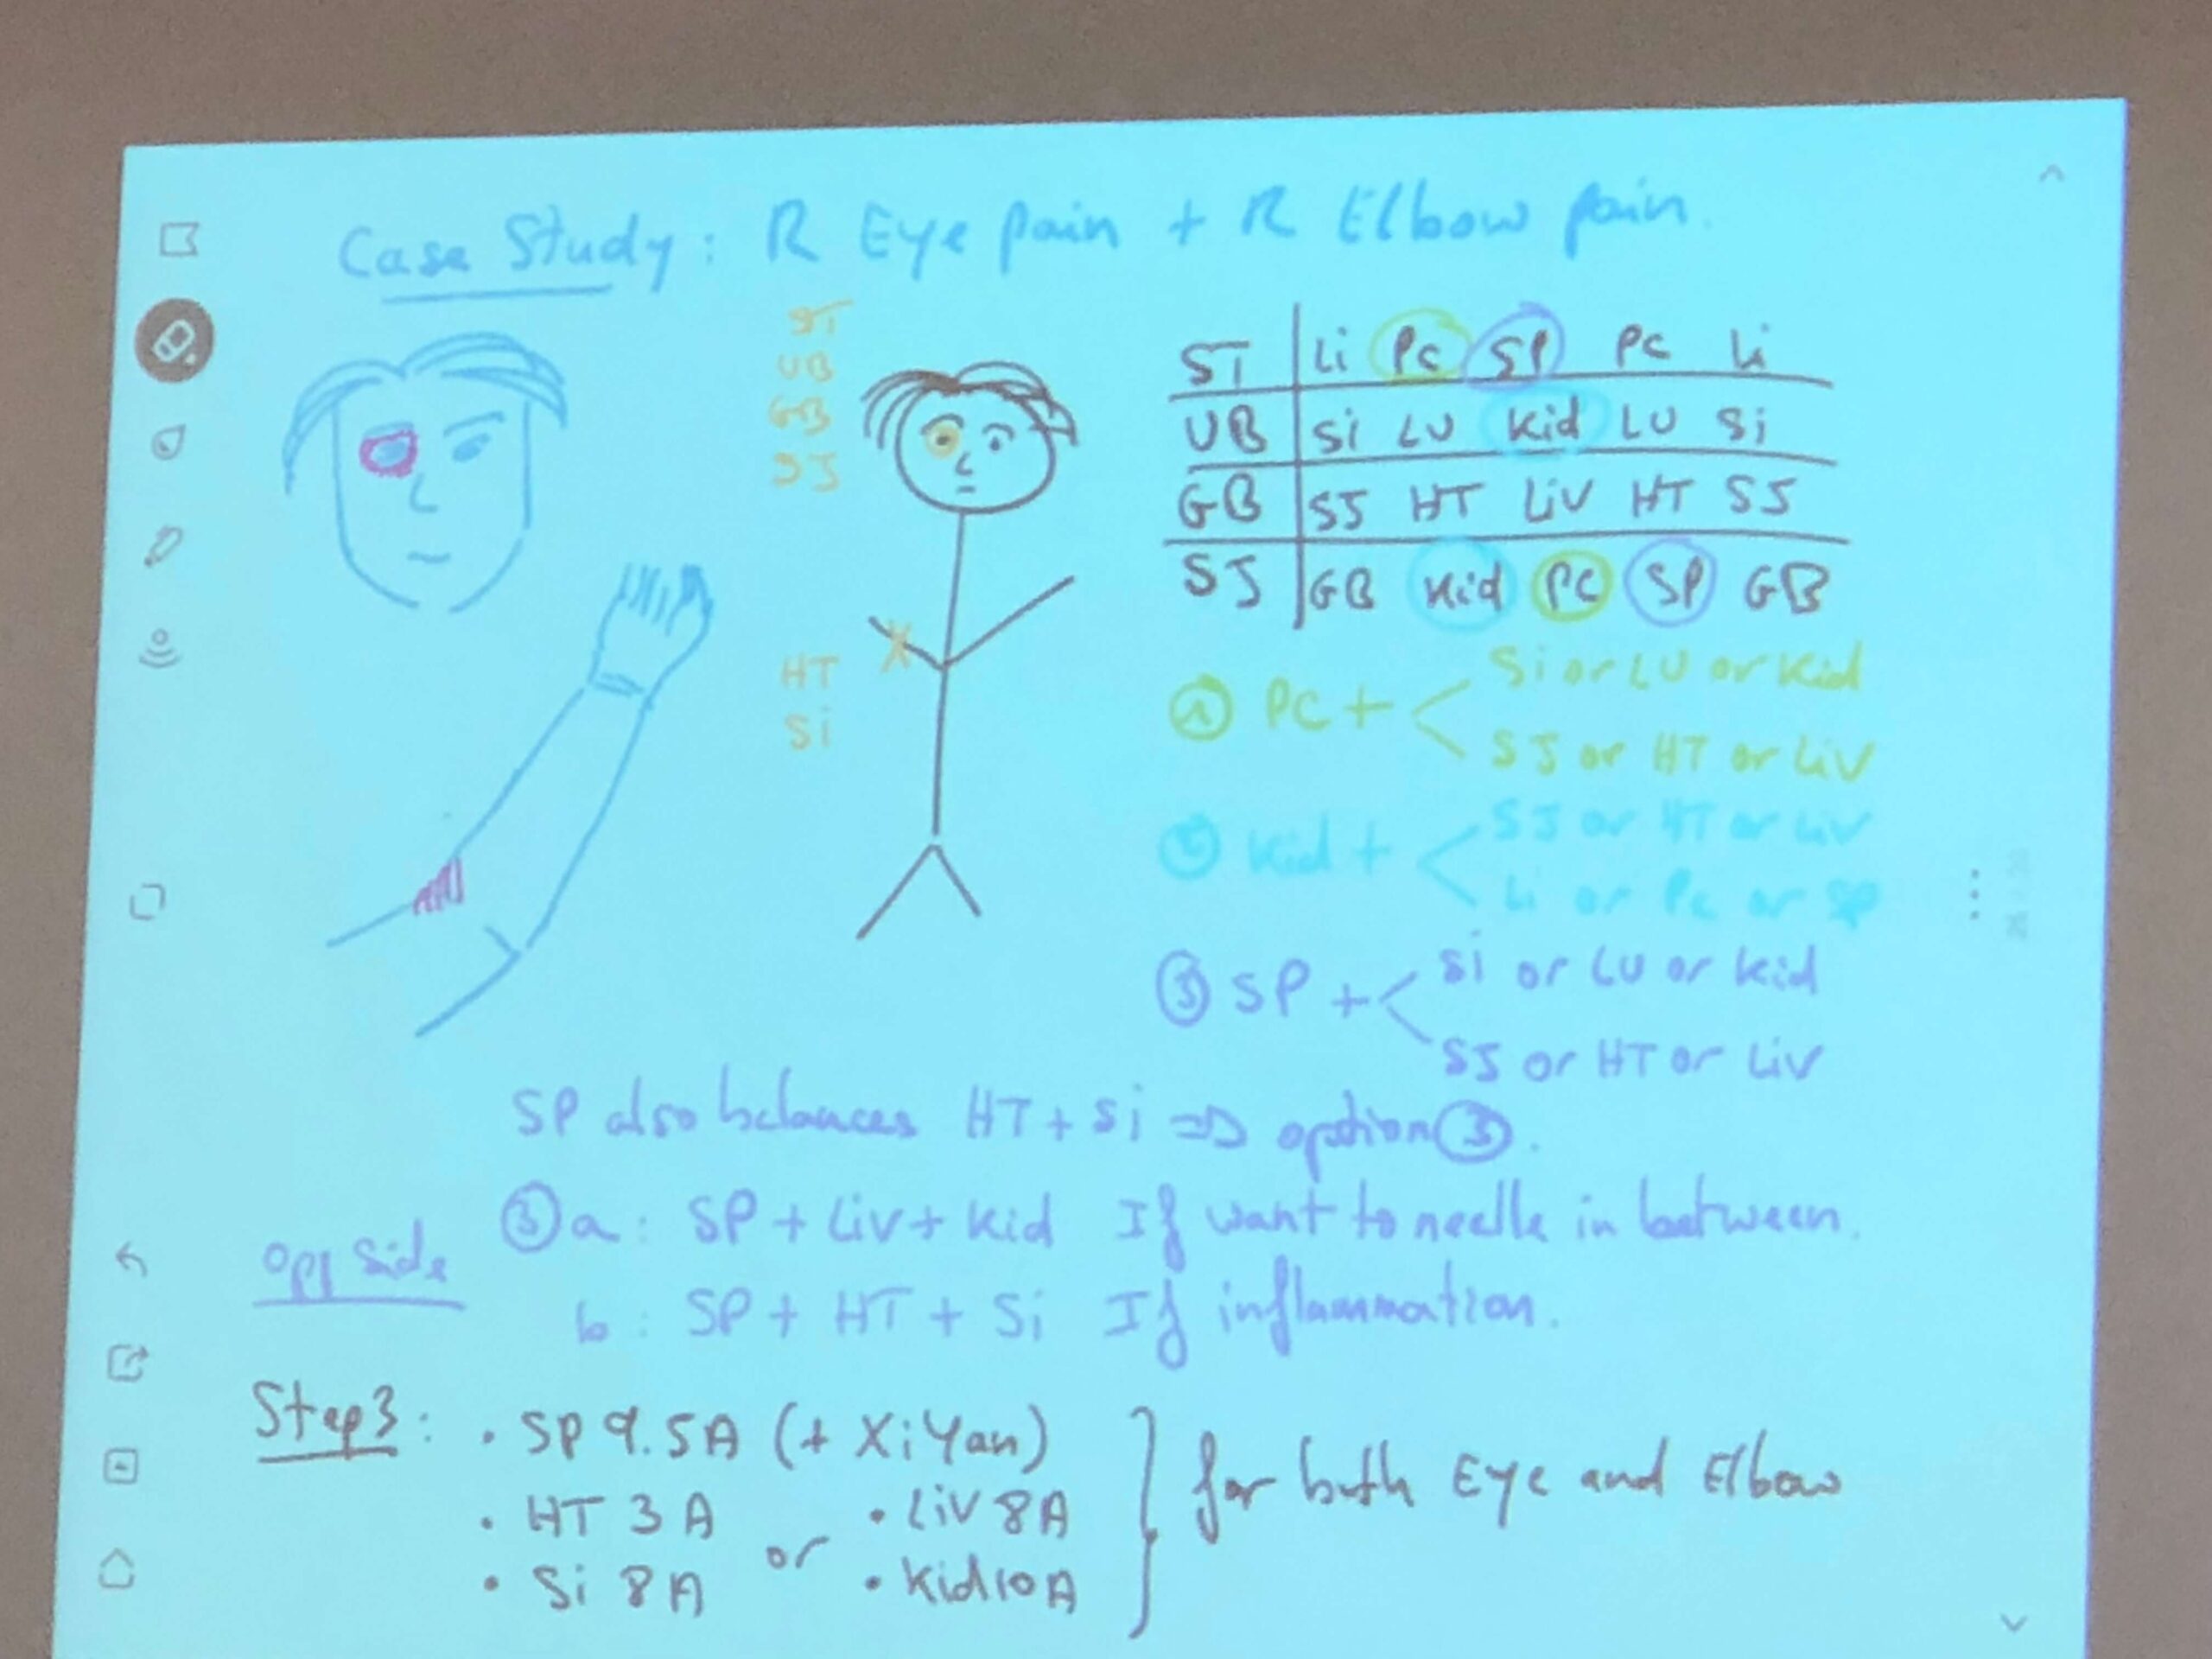 Case Study: R Eye pain + R Elbow pain.
ST
UB
GB
SJ
HT
Si
ST | Li PC SP PC Li
UB | Si LU Kid LU Si
GB | SJ HT LiV HT SJ
SJ | GB Kid PC SP GB
① PC + < Si or LU or Kid
SJ or HT or LiV
② Kid + < SJ or HT or LiV
Li or PC or SP
③ SP + < Si or LU or Kid
SJ or HT or Liv
SP also balances HT + Si => option ③.
opp side
③ a: SP + Liv + Kid If want to needle in between.
b: SP + HT + Si If inflammation.
Step 3: • SP 9.5A (+ XiYan)
• HT 3A or • LiV 8A
• Si 8A • Kid 10A
} for both Eye and Elbow